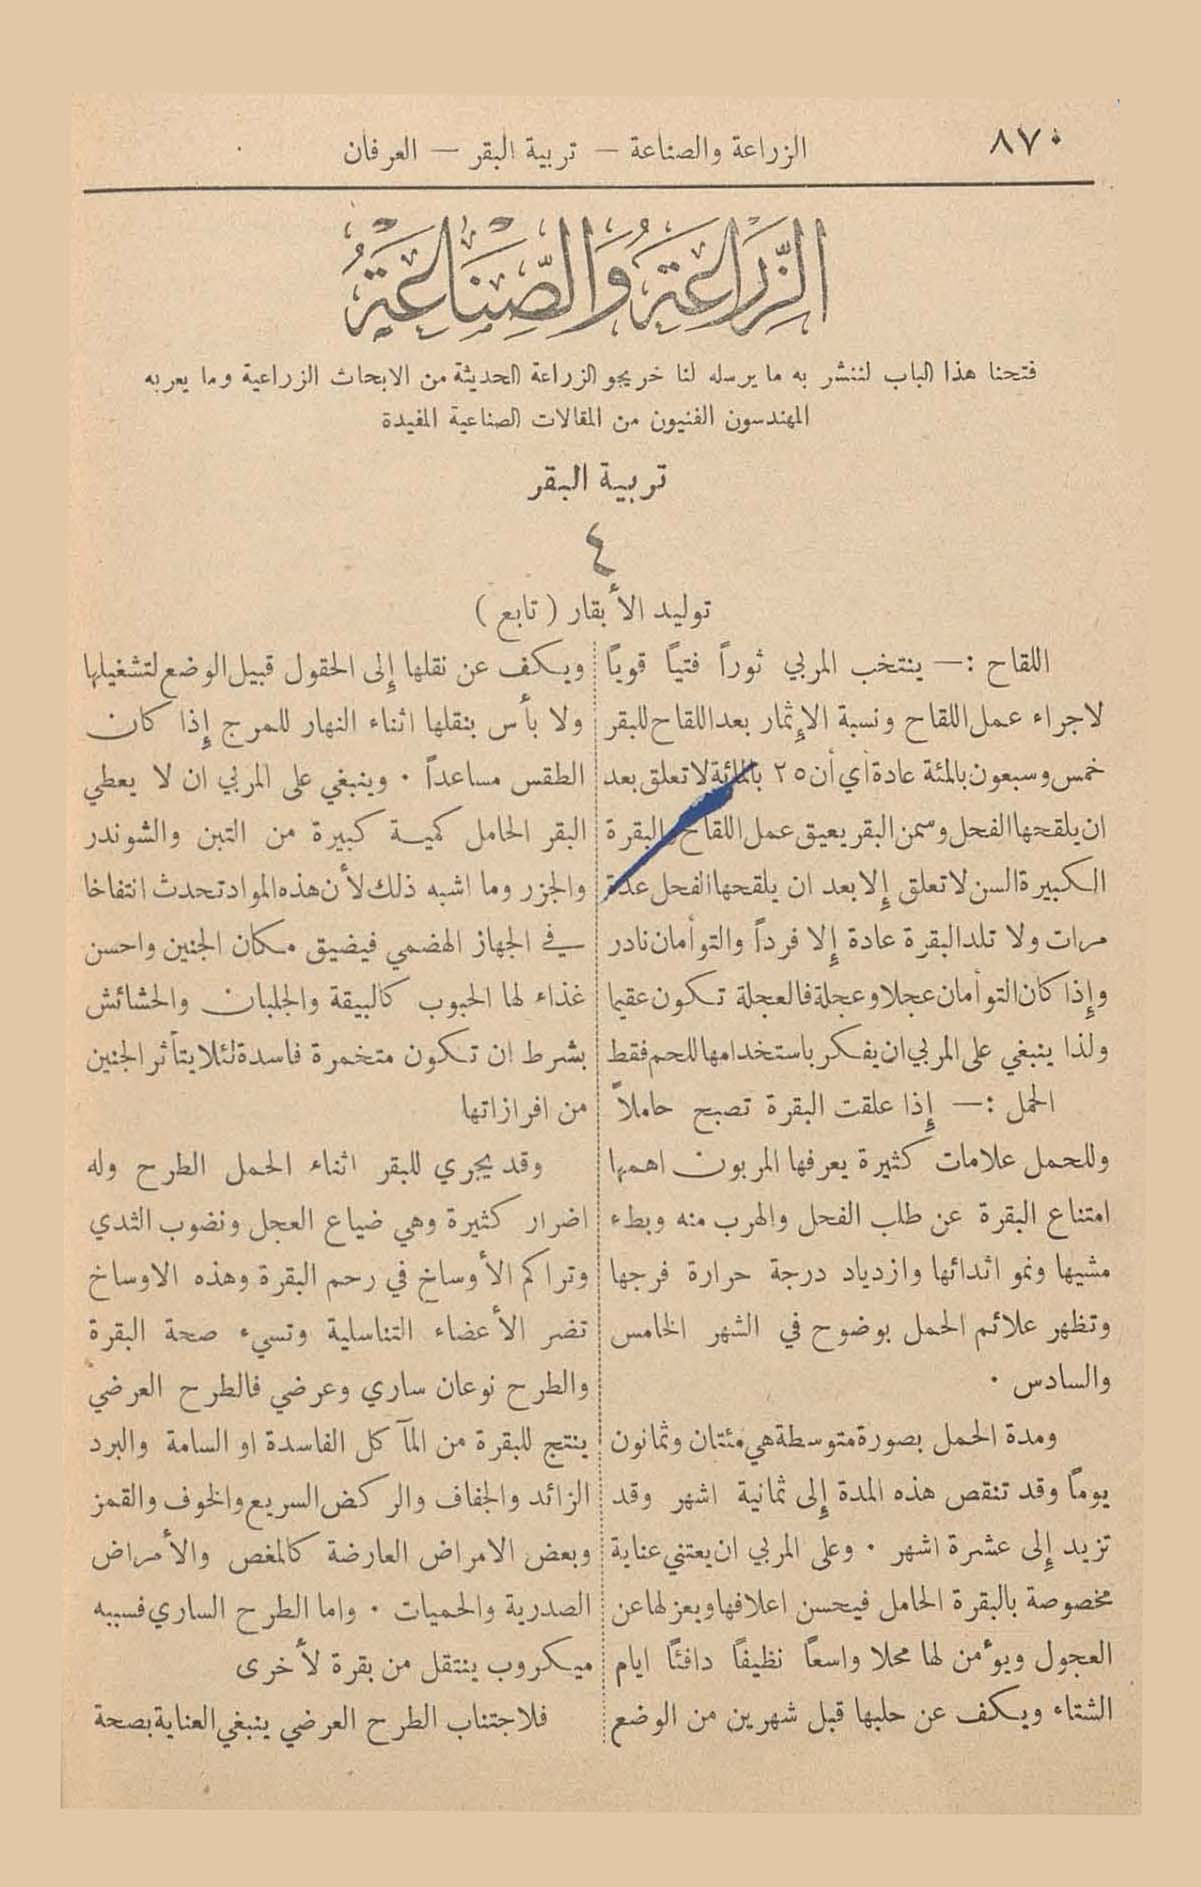 ٨٧٠
الزراعة والصناعة — تربية البقر — العرفان
الزِّرَاعَةُ وَالصِّنَاعَةُ
فتحنا هذا الباب لننشر به ما يرسله لنا خريجو الزراعة الحديثة من الابحاث الزراعية وما يعربه
المهندسون الفنيون من المقالات الصناعية المفيدة
تربية البقر
٤
توليد الأبقار ( تابع )
اللقاح :— ينتخب المربي ثوراً فتياً قوياً
لاجراء عمل اللقاح ونسبة الإثمار بعد اللقاح للبقر
خمس وسبعون بالمئة عادة أي أن ٢٥ بالمائة لا تعلق بعد
ان يلقحها الفحل وسمن البقر يعيق عمل اللقاح والبقرة
الكبيرة السن لا تعلق إلا بعد ان يلقحها الفحل عدة
مرات ولا تلد البقرة عادة إلا فرداً والتوأمان نادر
وإذا كان التوأمان عجلا وعجلة فالعجلة تكون عقيما
ولذا ينبغي على المربي ان يفكر باستخدامها للحم فقط
الحمل :— إذا علقت البقرة تصبح حاملاً
وللحمل علامات كثيرة يعرفها المربون اهمها
امتناع البقرة عن طلب الفحل والهرب منه وبطء
مشيها ونمو اثدائها وازدياد درجة حرارة فرجها
وتظهر علائم الحمل بوضوح في الشهر الخامس
والسادس ٠
ومدة الحمل بصورة متوسطة هي مئتان وثمانون
يوماً وقد تنقص هذه المدة إلى ثمانية اشهر وقد
تزيد إلى عشرة اشهر ٠ وعلى المربي ان يعتني عناية
مخصوصة بالبقرة الحامل فيحسن اعلافها ويعزلها عن
العجول ويؤمن لها محلا واسعاً نظيفاً دافئاً ايام
الشتاء ويكف عن حلبها قبل شهرين من الوضع
ويكف عن نقلها إلى الحقول قبيل الوضع لتشغيلها
ولا بأس بنقلها اثناء النهار للمرج إذا كان
الطقس مساعداً ٠ وينبغي على المربي ان لا يعطي
البقر الحامل كمية كبيرة من التبن والشوندر
والجزر وما اشبه ذلك لأن هذه المواد تحدث انتفاخا
في الجهاز الهضمي فيضيق مكان الجنين واحسن
غذاء لها الحبوب كالبيقة والجلبان والحشائش
بشرط ان تكون متخمرة فاسدة لئلا يتأثر الجنين
من افرازاتها
وقد يجري للبقر اثناء الحمل الطرح وله
اضرار كثيرة وهي ضياع العجل ونضوب الثدي
وتراكم الأوساخ في رحم البقرة وهذه الاوساخ
تضر الأعضاء التناسلية وتسيء صحة البقرة
والطرح نوعان ساري وعرضي فالطرح العرضي
ينتج للبقرة من المآكل الفاسدة او السامة والبرد
الزائد والجفاف والركض السريع والخوف والقمز
وبعض الامراض العارضة كالمغص والأمراض
الصدرية والحميات ٠ واما الطرح الساري فسببه
ميكروب ينتقل من بقرة لأخرى
فلاجتناب الطرح العرضي ينبغي العناية بصحة